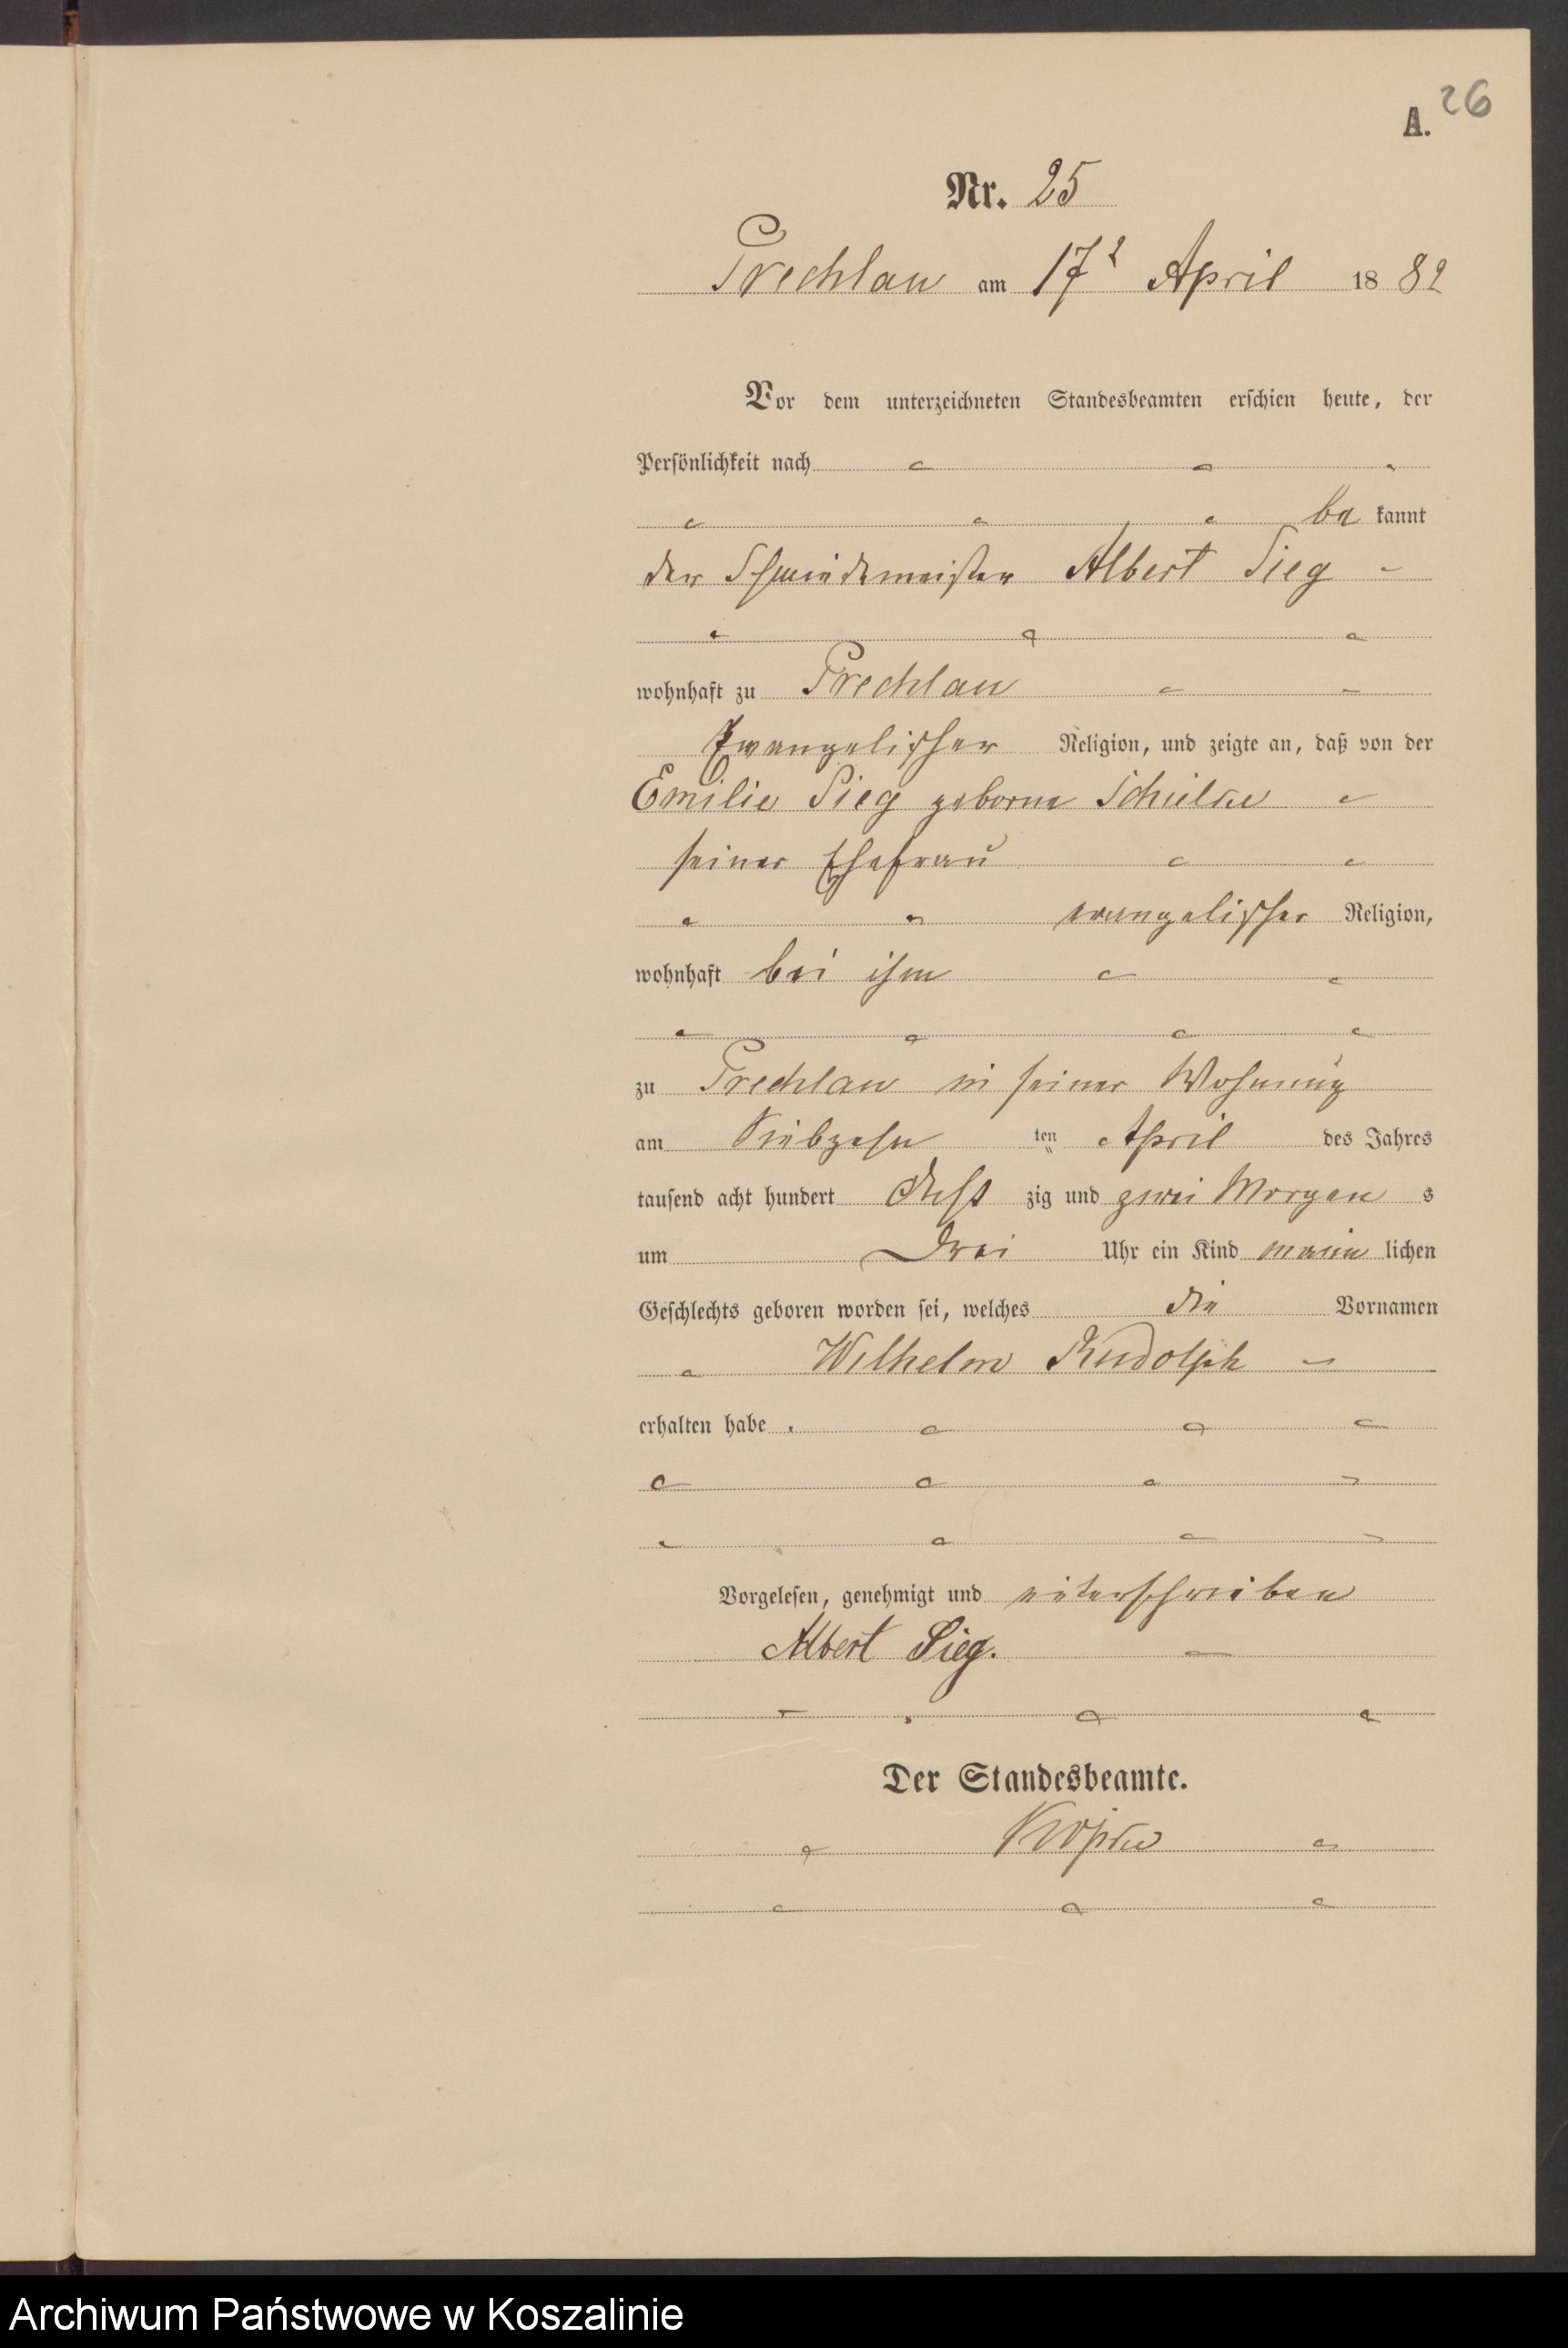 26
A.
Nr. 25
Prechlau am 17ᵗ April 1882
Vor dem unterzeichneten Standesbeamten erschien heute, der
Persönlichkeit nach
be kannt
der Schmiedemeister Albert Sieg
wohnhaft zu Prechlau
Evangelischer Religion, und zeigte an, daß von der
Emilie Sieg geborne Schülke
seiner Ehefrau
evangelischer Religion,
wohnhaft bei ihm
zu Prechlau in seiner Wohnung
am Siebzehn ten April des Jahres
tausend acht hundert Acht zig und zwei Morgen s
um Drei Uhr ein Kind männ lichen
Geschlechts geboren worden sei, welches die Vornamen
Wilhelm Rudolph
erhalten habe.
Vorgelesen, genehmigt und unterschrieben
Albert Sieg.
Der Standesbeamte.
Archiwum Państwowe w Koszalinie